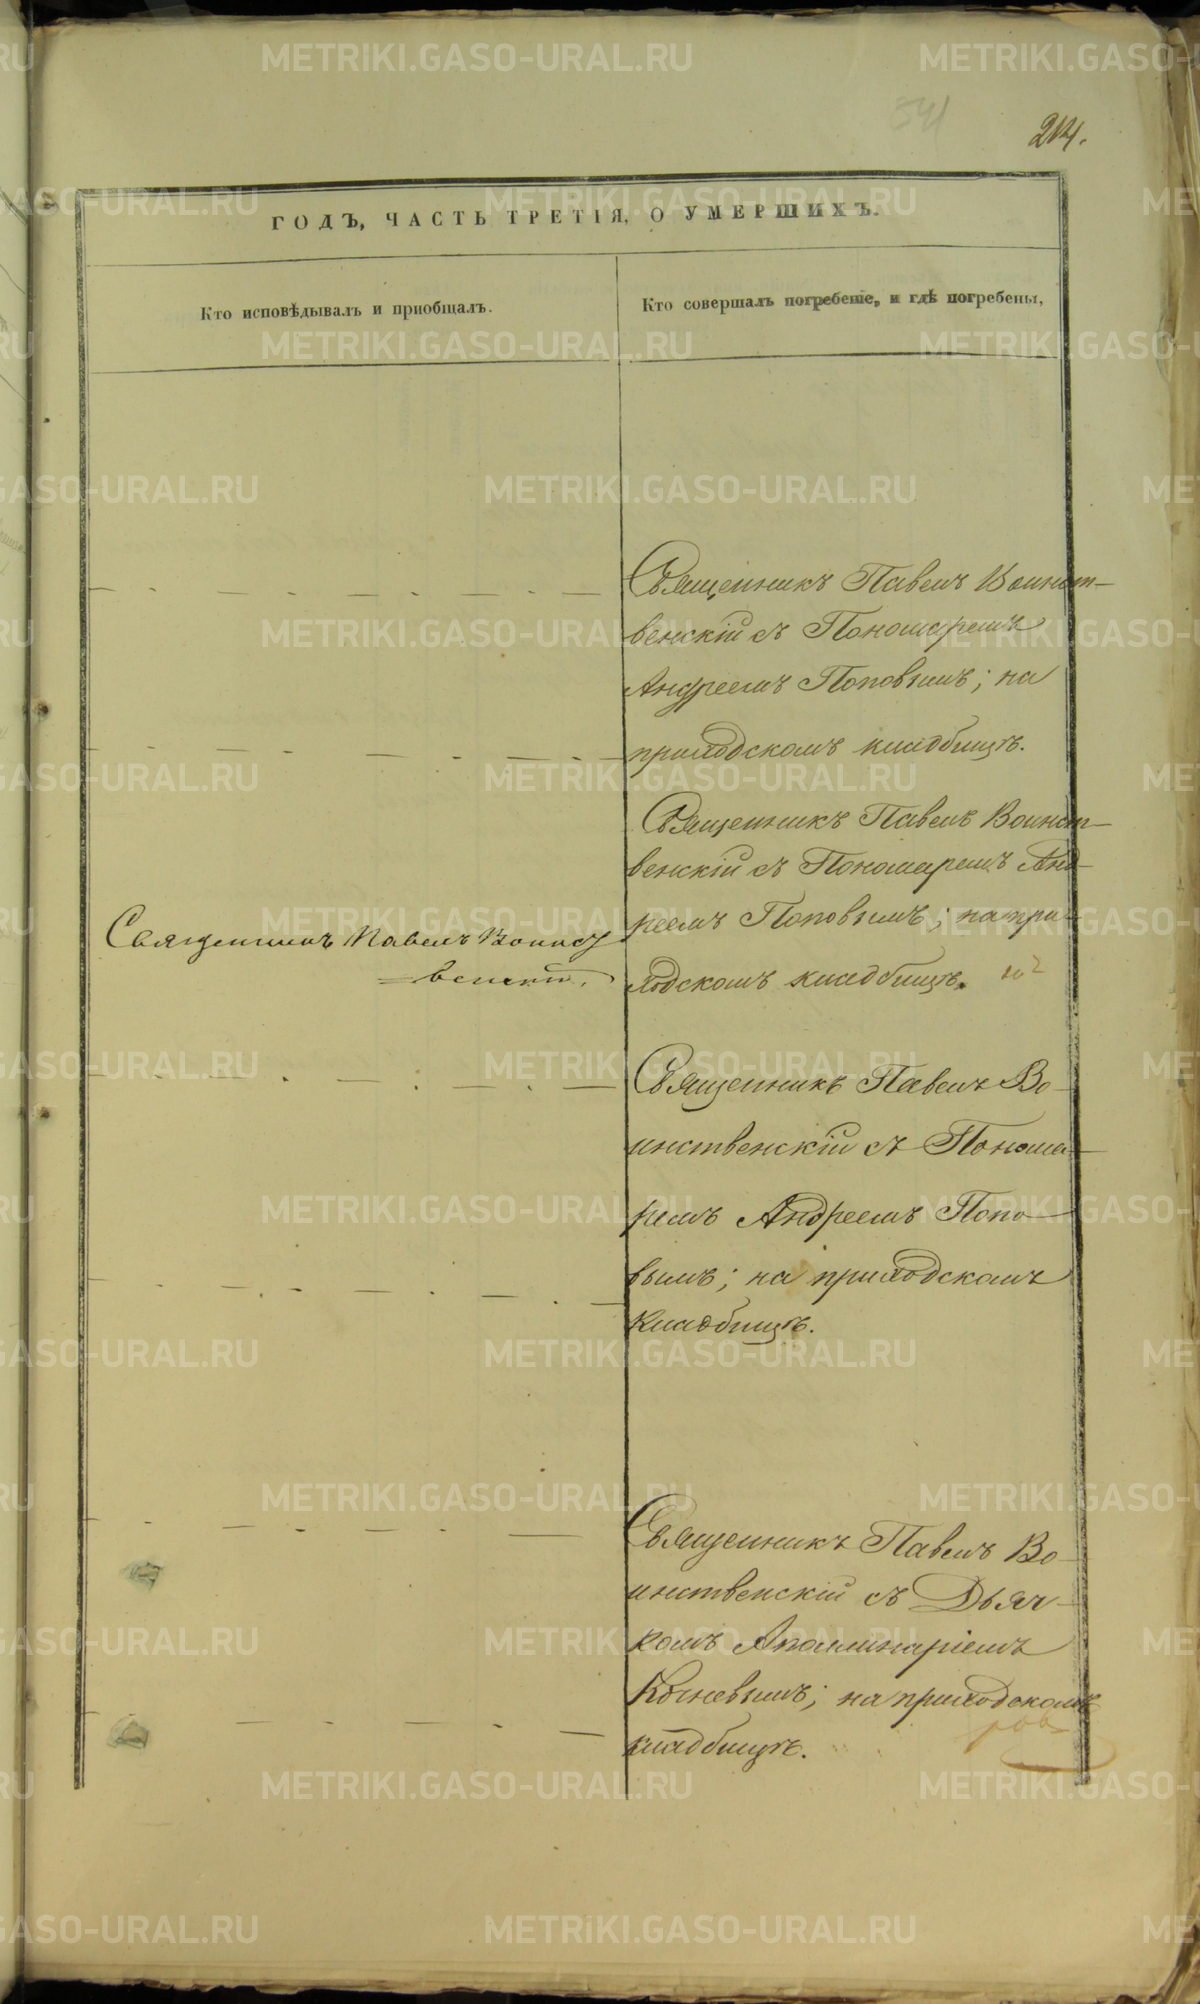 214.
ГОДЪ, ЧАСТЬ ТРЕТІЯ, О УМЕРШИХЪ.
Кто исповѣдывалъ и пріобщалъ.
Кто совершалъ погребеніе, и гдѣ погребены,
Священникъ Павелъ Воинст-
венскій съ Пономаремъ
Андреемъ Поповымъ; на
приходскомъ кладбищѣ.
Священникъ Павелъ Воинст-
венскій съ Пономаремъ Анд-
реемъ Поповымъ; на при-
ходскомъ кладбищѣ.
Священникъ Павелъ Воинст
венскій.
Священникъ Павелъ Во-
инственскій съ Понома-
ремъ Андреемъ Попо-
вымъ; на приходскомъ
кладбищѣ.
Священникъ Павелъ Во-
инственскій съ Дьяч-
комъ Аполлинаріемъ
на приходскомъ
кладбищѣ.
METRIKI.GASO-URAL.RU